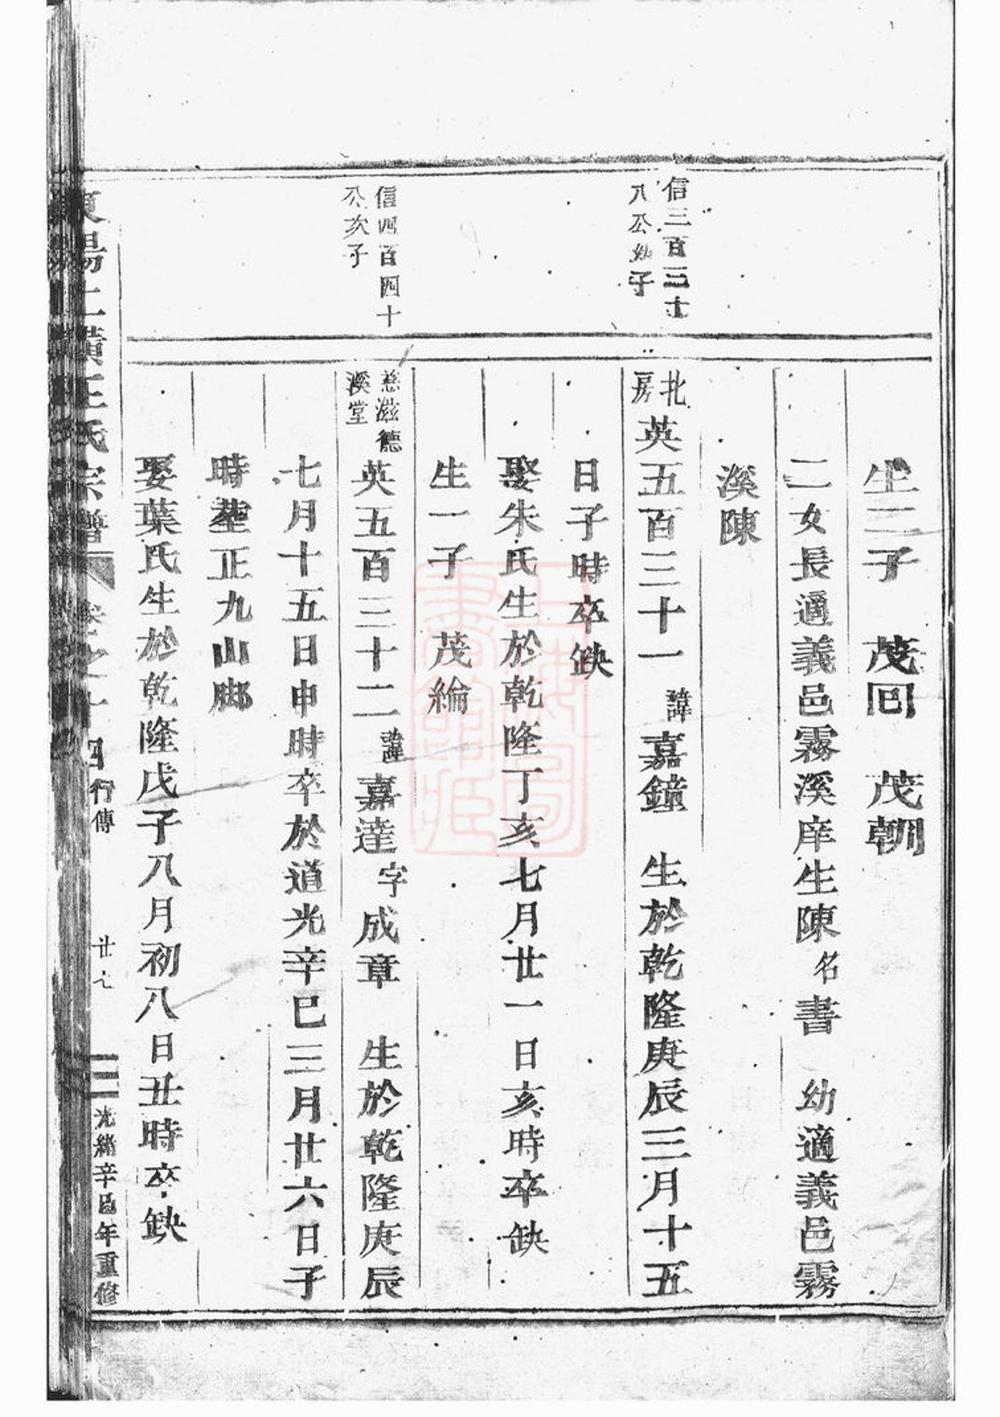 生二子　茂回　茂朝
二女長適義邑霧溪庠生陳名書　幼適義邑霧
溪陳
信三百三十
八公幼子
北
房
英五百三十一　諱嘉鐘　生於乾隆庚辰三月十五
日子時卒缺
娶朱氏生於乾隆丁亥七月廿一日亥時卒缺
生一子　茂綸
信四百四十
公次子
慈滋德
溪堂
英五百三十二　諱嘉達字成章　生於乾隆庚辰
七月十五日申時卒於道光辛巳三月廿六日子
時塟正九山腳
娶葉氏生於乾隆戊子八月初八日丑時卒缺
東陽上璜王氏宗譜
卷之
行傳
廿七
光緒辛丑年重修